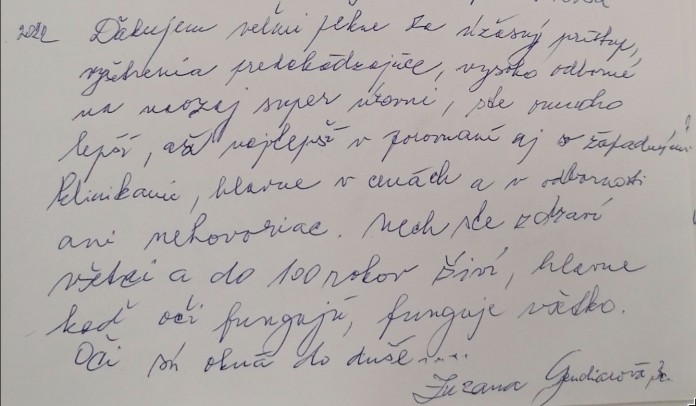 2022 Ďakujem veľmi pekne za úžasný prístup,
vyšetrenia predchádzajúce, vysoko odborné
na naozaj super úrovni, ste omnoho
lepší, až najlepší v porovnaní aj so západnými
klinikami, hlavne v cenách a v odbornosti
ani nehovoriac. Nech ste zdraví
všetci a do 100 rokov živí, hlavne
keď oči fungujú, funguje všetko.
Oči sú okná do duše....
Zuzana